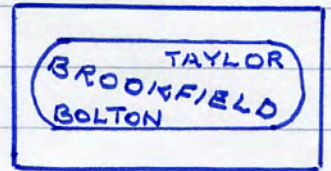 TAYLOR
BROOKFIELD
BOLTON